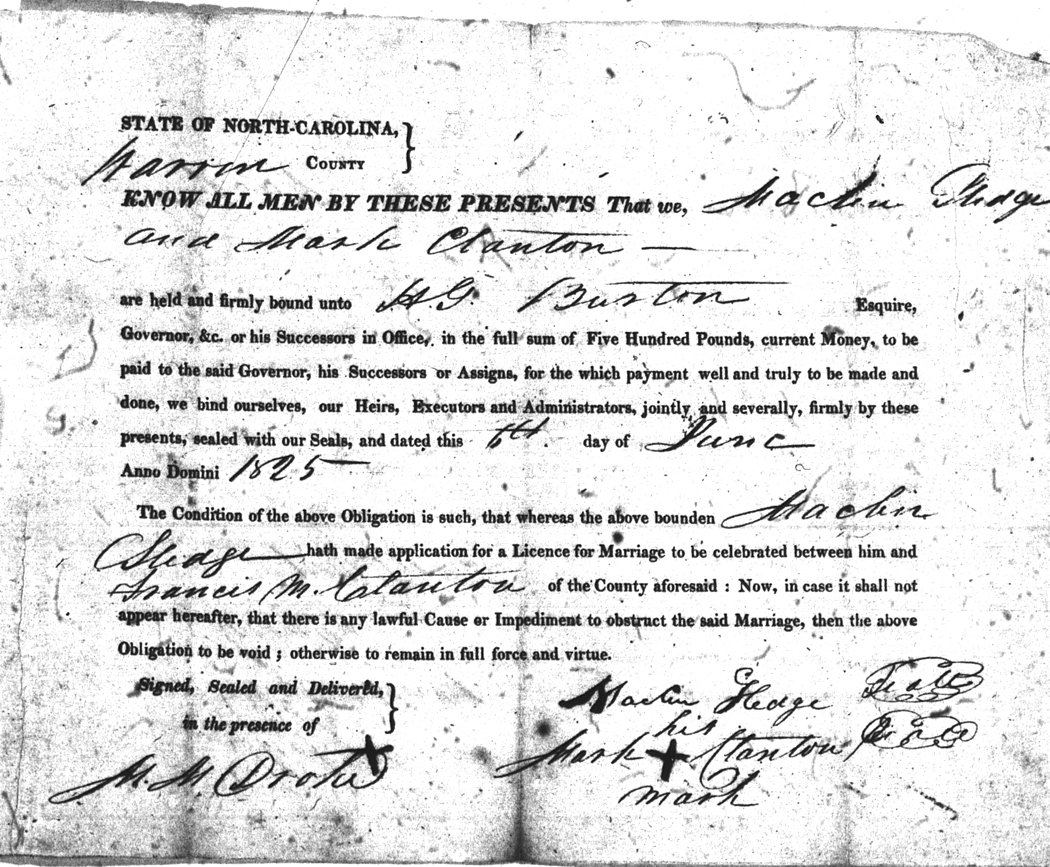 STATE OF NORTH-CAROLINA, }
Warren COUNTY
KNOW ALL MEN BY THESE PRESENTS That we, Maclin Sledge
and Mark Clanton —
are held and firmly bound unto H G Burton Esquire,
Governor, &c. or his Successors in Office, in the full sum of Five Hundred Pounds, current Money, to be
paid to the said Governor, his Successors or Assigns, for the which payment well and truly to be made and
done, we bind ourselves, our Heirs, Executors and Administrators, jointly and severally, firmly by these
presents, sealed with our Seals, and dated this 6th. day of June
Anno Domini 1825
The Condition of the above Obligation is such, that whereas the above bounden Maclin
Sledge hath made application for a Licence for Marriage to be celebrated between him and
Francis M. Clanton of the County aforesaid : Now, in case it shall not
appear hereafter, that there is any lawful Cause or Impediment to obstruct the said Marriage, then the above
Obligation to be void ; otherwise to remain in full force and virtue.
Signed, Sealed and Delivered, }
in the presence of
Maclin Sledge Seal
his
Mark + Clanton Seal
mark
M. M. Drake